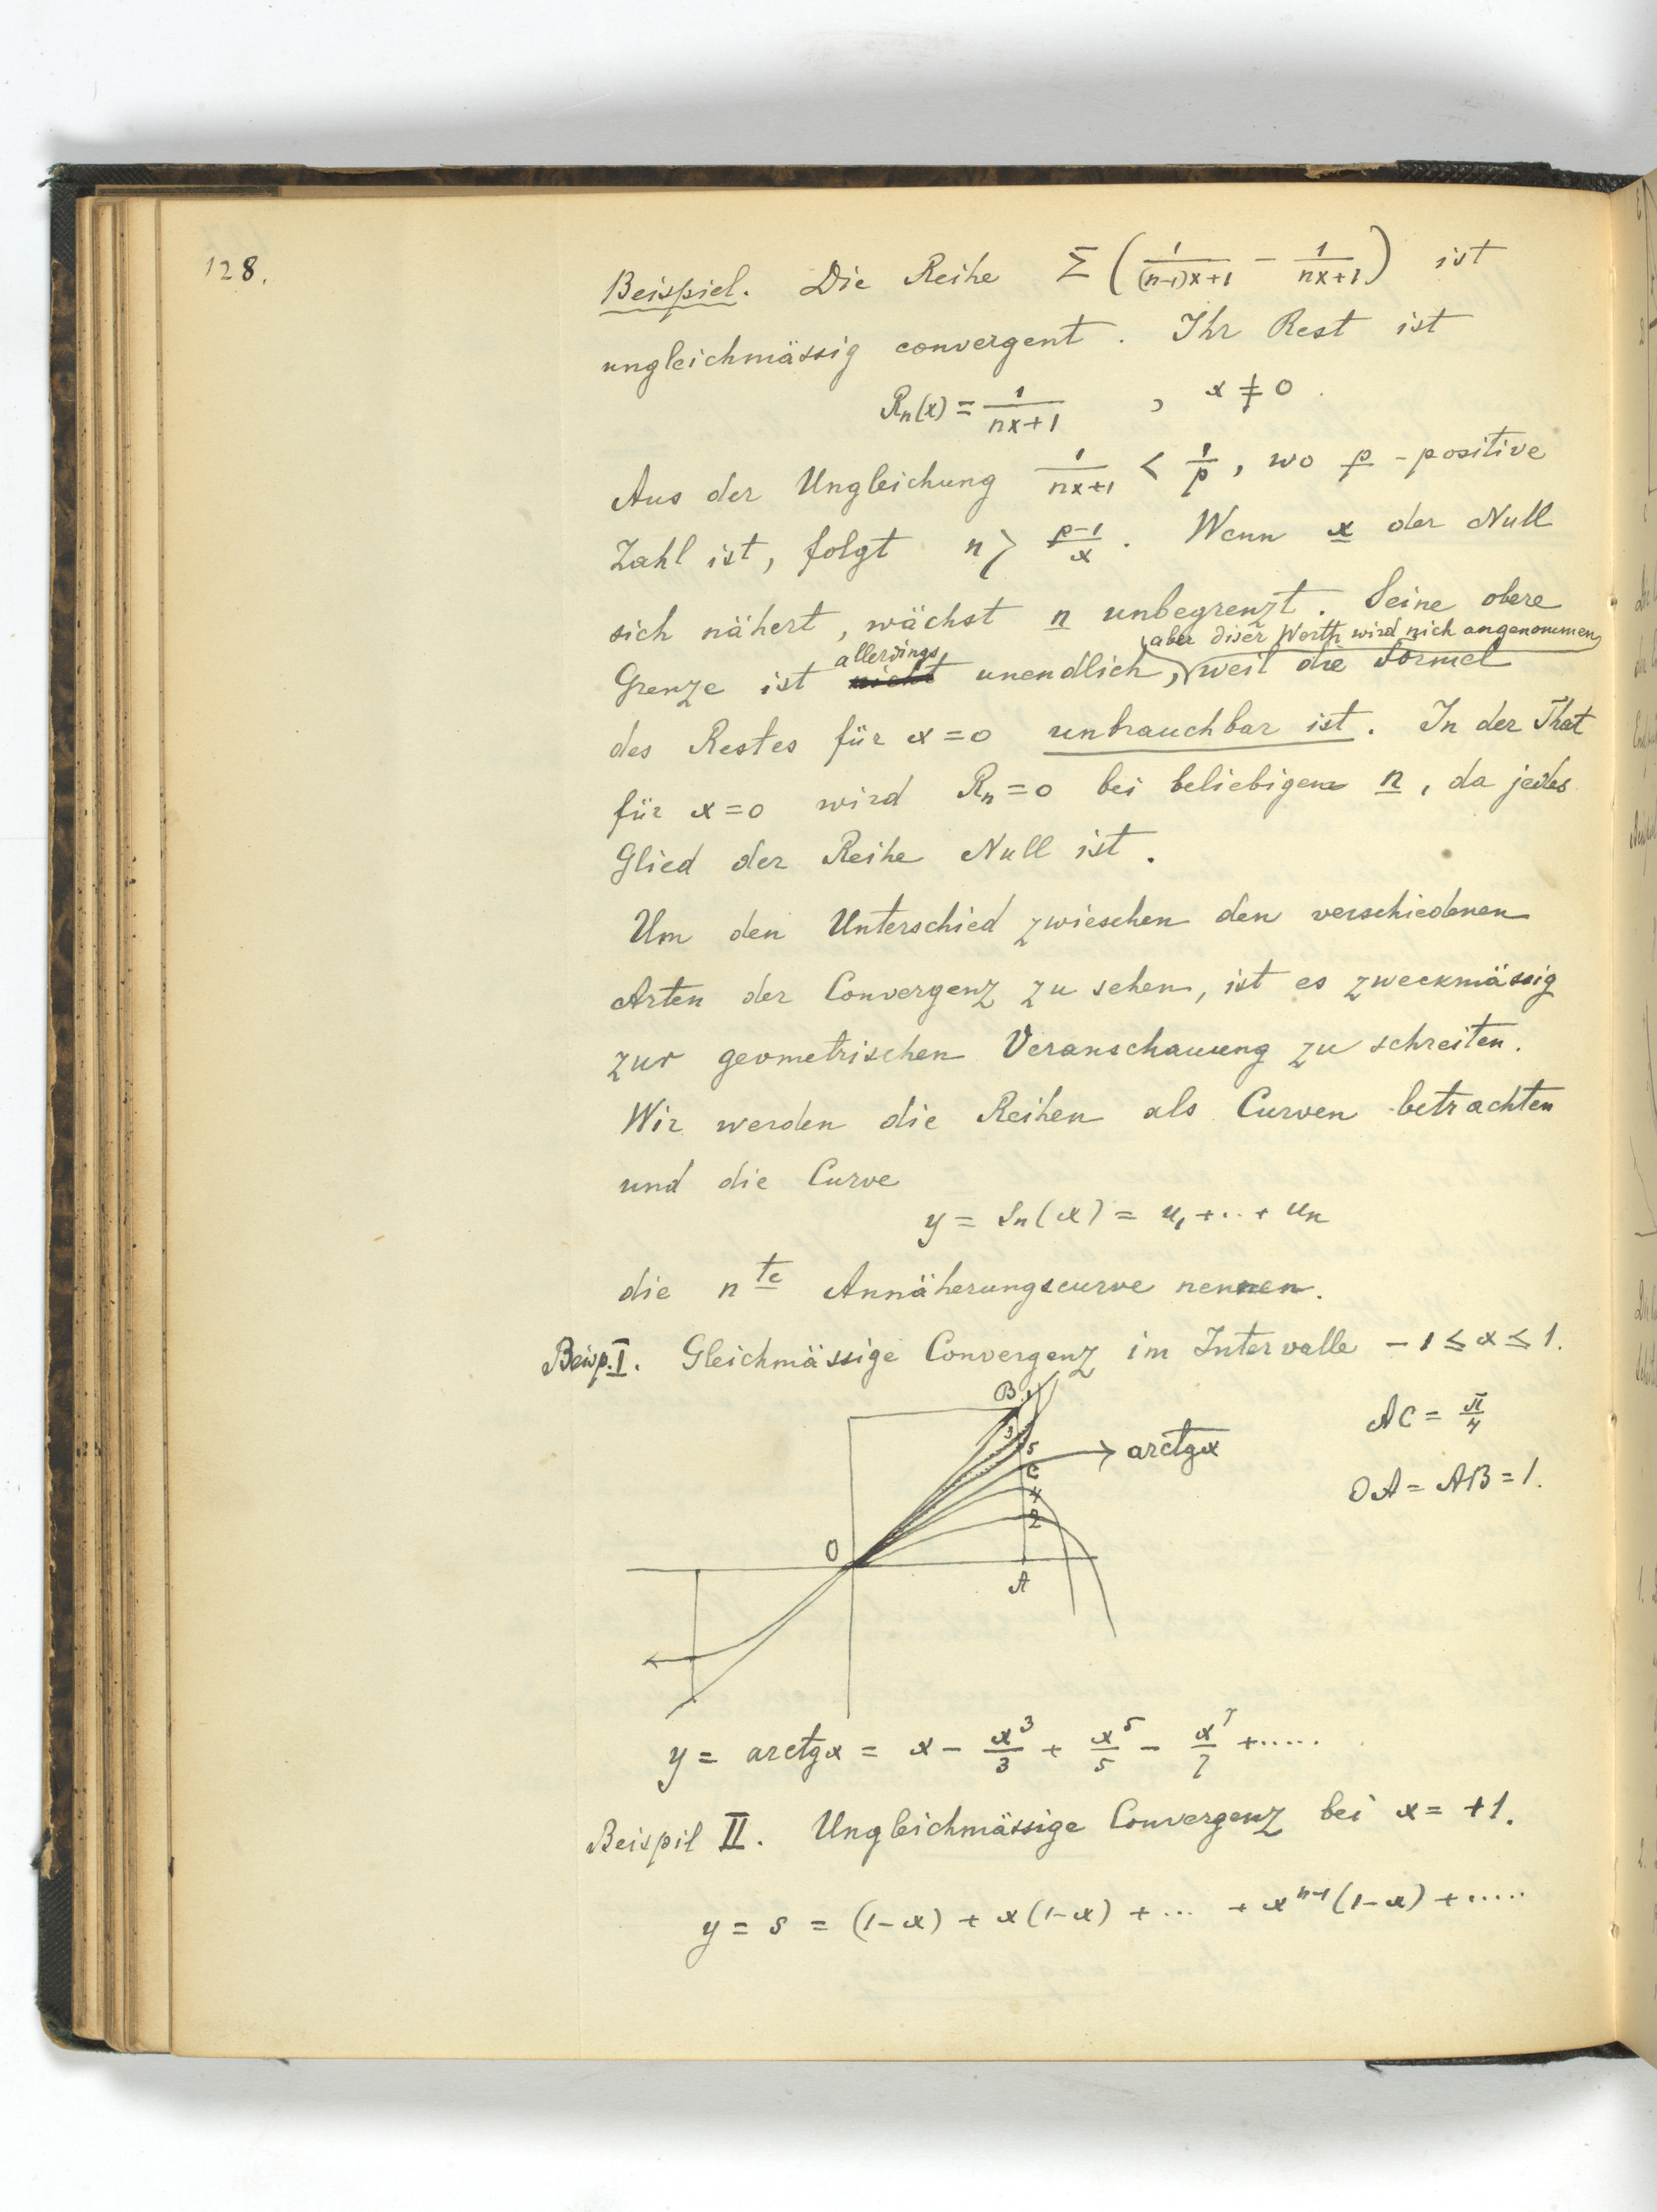 128.
Beispiel. Die Reihe Σ (1/((n-1)x+1) - 1/(nx+1)) ist
ungleichmässig convergent. Ihr Rest ist
Rn(x) = 1/(nx+1) , x ≠ 0.
Aus der Ungleichung 1/(nx+1) < 1/p, wo p - positive
Zahl ist, folgt n > (p-1)/x. Wenn x der Null
sich nähert, wächst n unbegrenzt. Seine obere
aber diser Werth wird nich angenommen
allerdings
Grenze ist nicht unendlich, weil die Formel
des Restes für x=0 unbrauchbar ist. In der That
für x=0 wird Rn=0 bei beliebigem n, da jedes
Glied der Reihe Null ist.
Um den Unterschied zwieschen den verschiedenen
Arten der Convergenz zu sehen, ist es zweckmässig
zur geometrischen Veranschauung zu schreiten.
Wir werden die Reihen als Curven betrachten
und die Curve
y = Sn(x) = u₁ + .. + un
die n te Annäherungscurve nennen.
Beisp. I. Gleichmässige Convergenz im Intervalle -1 ≤ x ≤ 1.
B 1
3
5
C
4
2
O
A
arctgx
AC = π/4
OA = AB = 1.
y = arctgx = x - x³/3 + x⁵/5 - x⁷/7 + .....
Beispil II. Ungleichmässige Convergenz bei x = +1.
y = s = (1-x) + x(1-x) + ... + xⁿ⁻¹(1-x) + .....